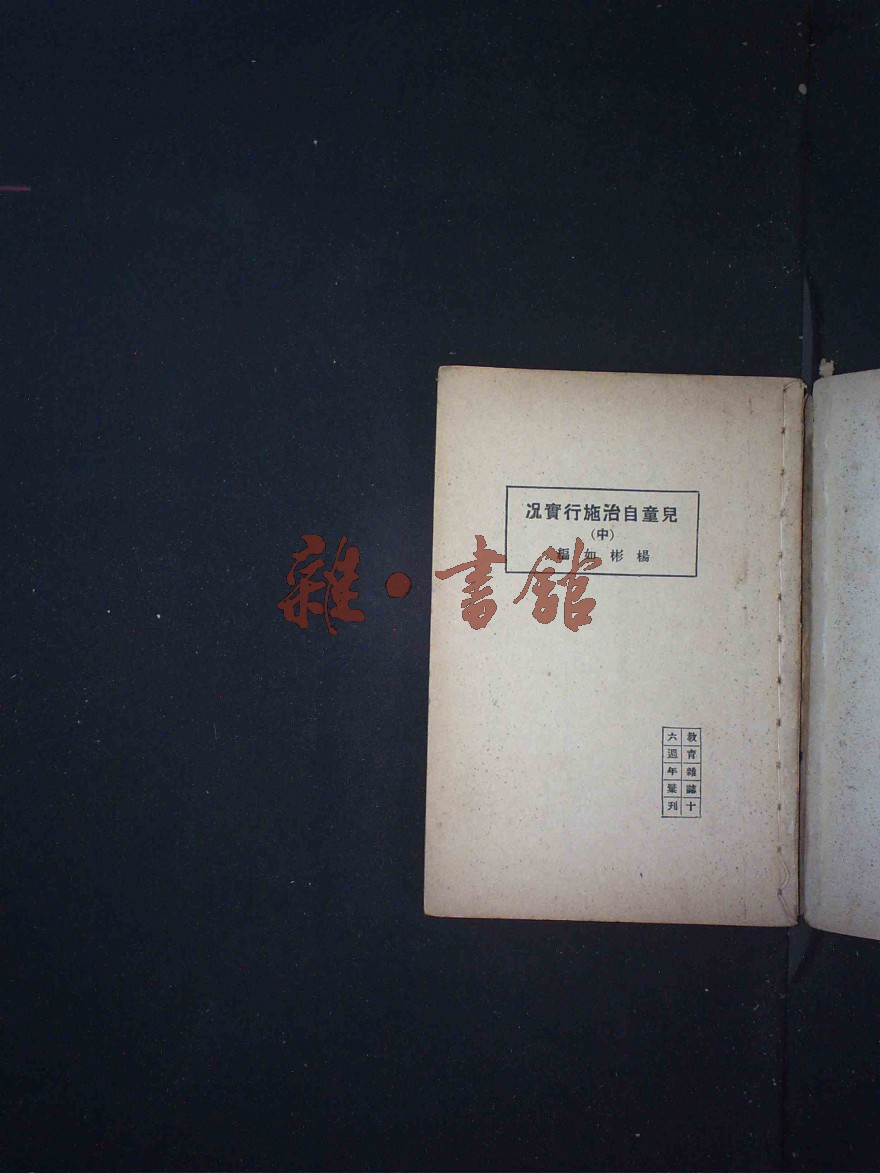 兒童自治施行實况
(中)
楊彬如編
雜·書館
教育雜誌十
六週年彙刊